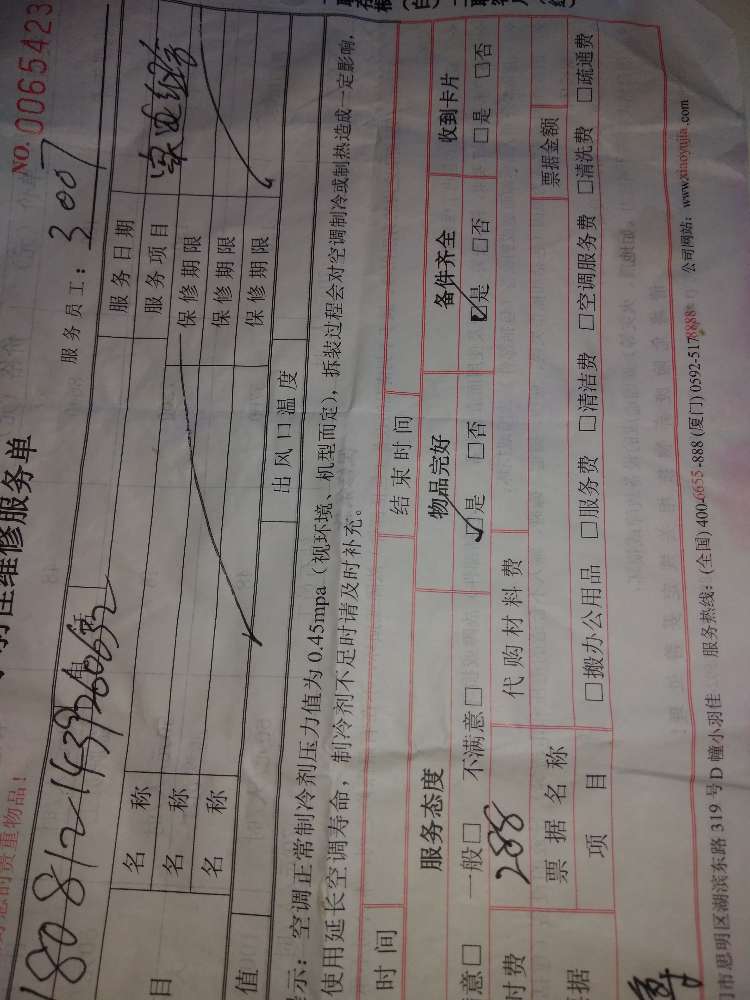 维修服务单
NO. 0065423
您的贵重物品！
服务员工：3007
电话
服务日期
名称 服务项目 家电维修
名称 保修期限
名称 保修期限
保修期限
目
值 出风口温度
示：空调正常制冷剂压力值为0.45mpa（视环境、机型而定），拆装过程会对空调制冷或制热造成一定影响，
使用延长空调寿命，制冷剂不足时请及时补充。
时间 结束时间
服务态度 物品完好 备件齐全 收到卡片
意□ 一般□ 不满意□ ☑是 □否 ☑是 □否 □是 □否
付费 288 代购材料费
据 票据名称 票据金额
项目 □搬办公用品 □服务费 □清洁费 □空调服务费 □清洗费 □疏通费
市思明区湖滨东路319号D幢小羽佳 服务热线：(全国) 400-6655-888 (厦门) 0592-5178888 公司网站：www.xiaoyujia.com